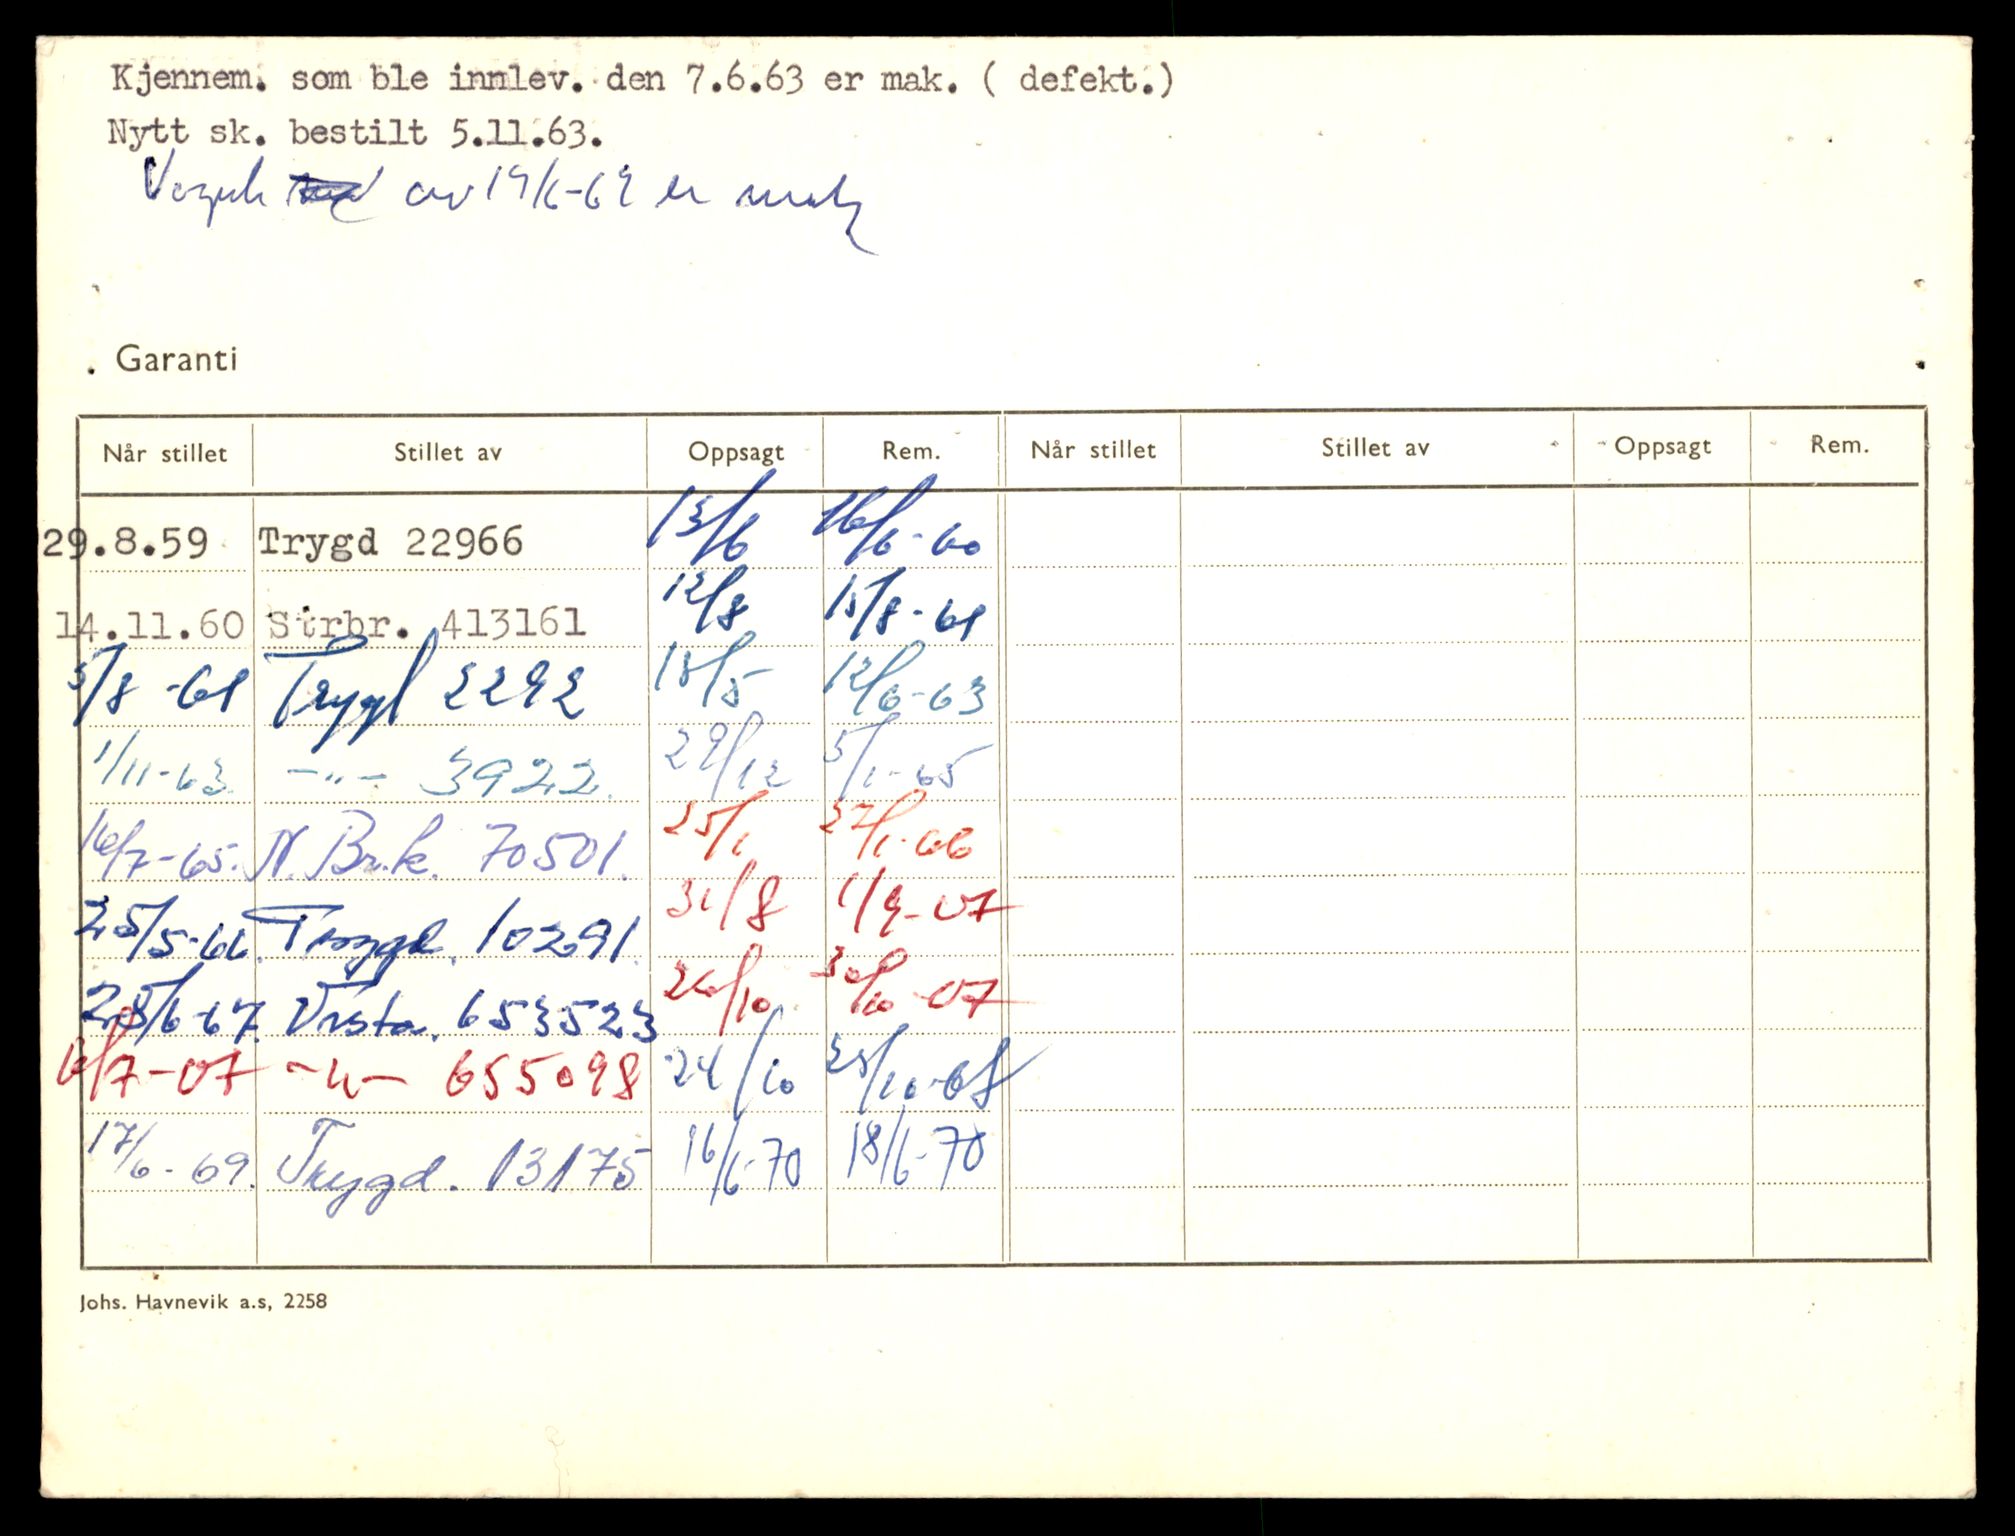 Kjennem. som ble innlev. den 7.6.63 er mak. ( defekt.)
Nytt sk. bestilt 5.11.63.
av 19/6-69 er mak
Garanti
Når stillet Stillet av Oppsagt Rem. Når stillet Stillet av Oppsagt Rem.
29.8.59 Trygd 22966 13/6 16/6-60
14.11.60 Strbr. 413161 12/8 15/8-61
5/8 -61 Trygd 2292 15/5 12/6-63
1/11-63 -"- 3922. 29/12 5/1-65
16/7-65. N. Br.k. 70501. 25/1 27/1-66
25/5-66. Trygd. 10291. 31/8 1/9-67
25/6-67. Vesta. 653523 26/10 30/10-67
-"- 655098 24/10 25/10-68
17/6-69. Trygd. 13175 16/6-70 18/6-70
Johs. Havnevik a.s, 2258